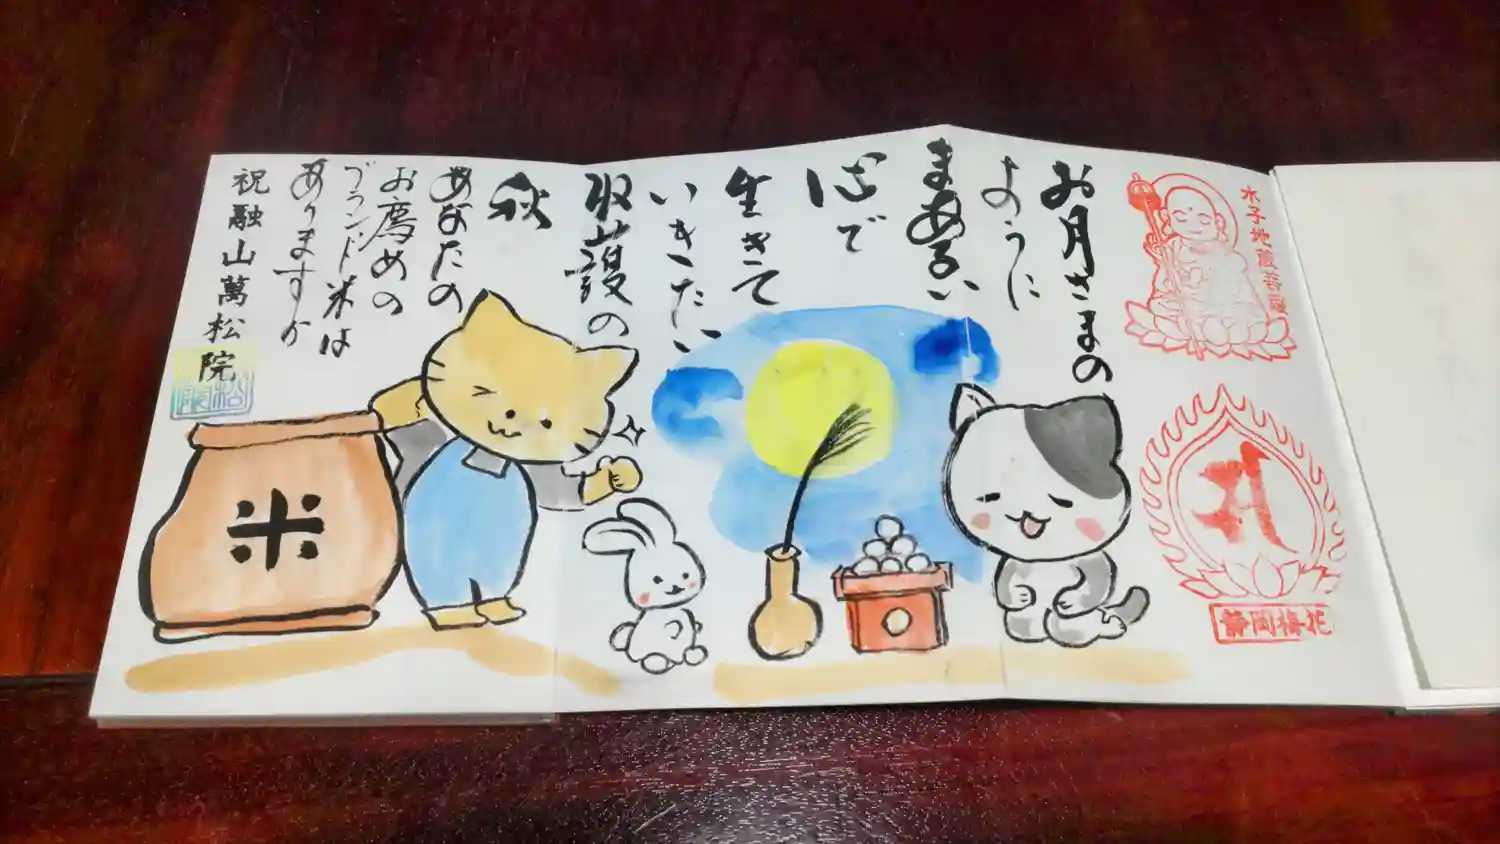 水子地蔵菩薩
静岡梅花
お月さまの
ように
まあるい
心で
生きて
いきたい
収穫の
秋
あなたの
お薦めの
ブランド米は
ありますか
祝融山萬松院
米